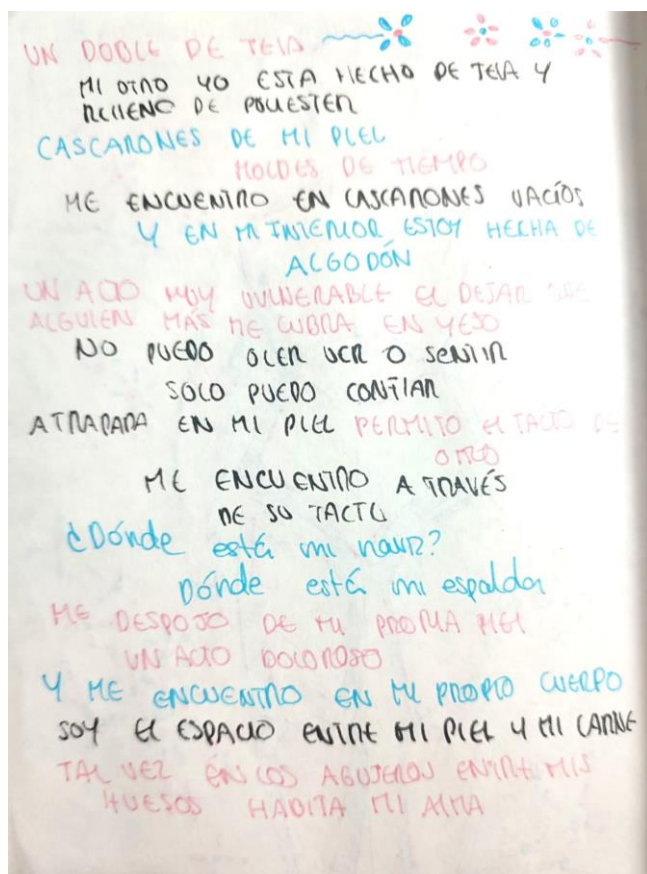 UN DOBLE DE TELA
MI OTRO YO ESTA HECHO DE TELA Y
RELLENO DE POLIESTER
CASCARONES DE MI PIEL
MOLDES DE TIEMPO
ME ENCUENTRO EN CASCARONES VACÍOS
Y EN MI INTERIOR ESTOY HECHA DE
ALGODÓN
UN ACTO MUY VULNERABLE EL DEJAR QUE
ALGUIEN MÁS ME CUBRA EN YESO
NO PUEDO OLER VER O SENTIR
SOLO PUEDO CONFIAR
ATRAPADA EN MI PIEL PERMITO EL TACTO DE
OTRO
ME ENCUENTRO A TRAVÉS
DE SU TACTO
¿Dónde está mi nariz?
Dónde está mi espalda
ME DESPOJO DE MI PROPIA PIEL
UN ACTO DOLOROSO
Y ME ENCUENTRO EN MI PROPIO CUERPO
SOY EL ESPACIO ENTRE MI PIEL Y MI CARNE
TAL VEZ EN LOS AGUJEROS ENTRE MIS
HUESOS HABITA MI ALMA